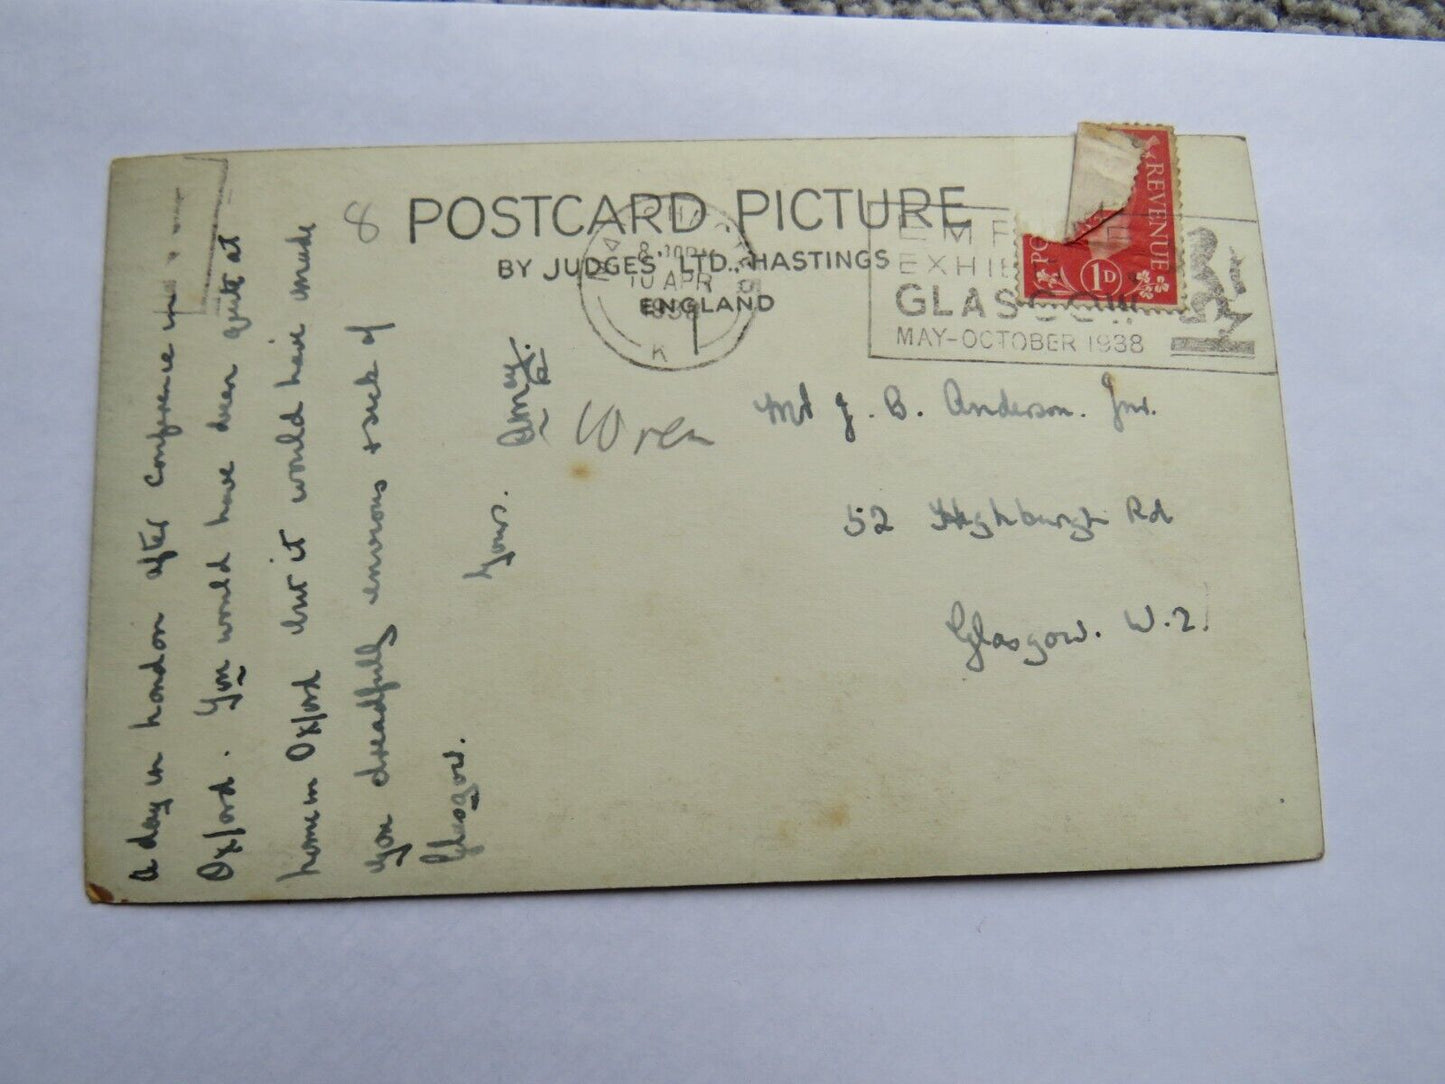 POSTCARD PICTURE
BY JUDGES' LTD., HASTINGS
ENGLAND
8
10 APR
K
EXHI
GLASGOW
MAY-OCTOBER 1938
REVENUE
1D
Mr J. B. Anderson. Jnr.
52 Highburgh Rd
Glasgow. W.2.
Wren
A day in London after conference in
Oxford. You would have been quite at
home in Oxford but it would have made
you dreadfully envious & sick of
Glasgow.
Yours.